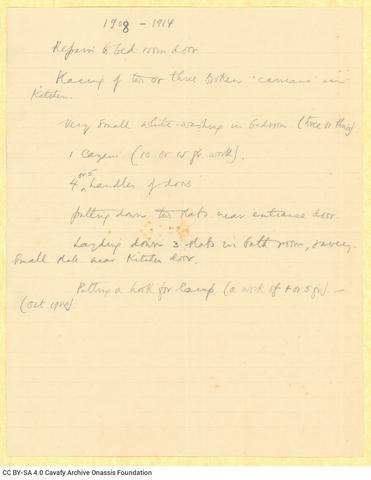 1908 - 1914
Repairs to bed room door.
Placing of two or three broken in
Kitchen.
Very small white-washing in bedroom (twice or thrice)
1 (10 or 15 work).
or 5
4 handles of doors
putting down two slabs near entrance door.
Laying down 3 slabs in bath room, &
small slab near Kitchen door.
Putting a hook for lamp (a work of 4 or 5 ). —
(Oct. 1914)
CC BY-SA 4.0 Cavafy Archive Onassis Foundation